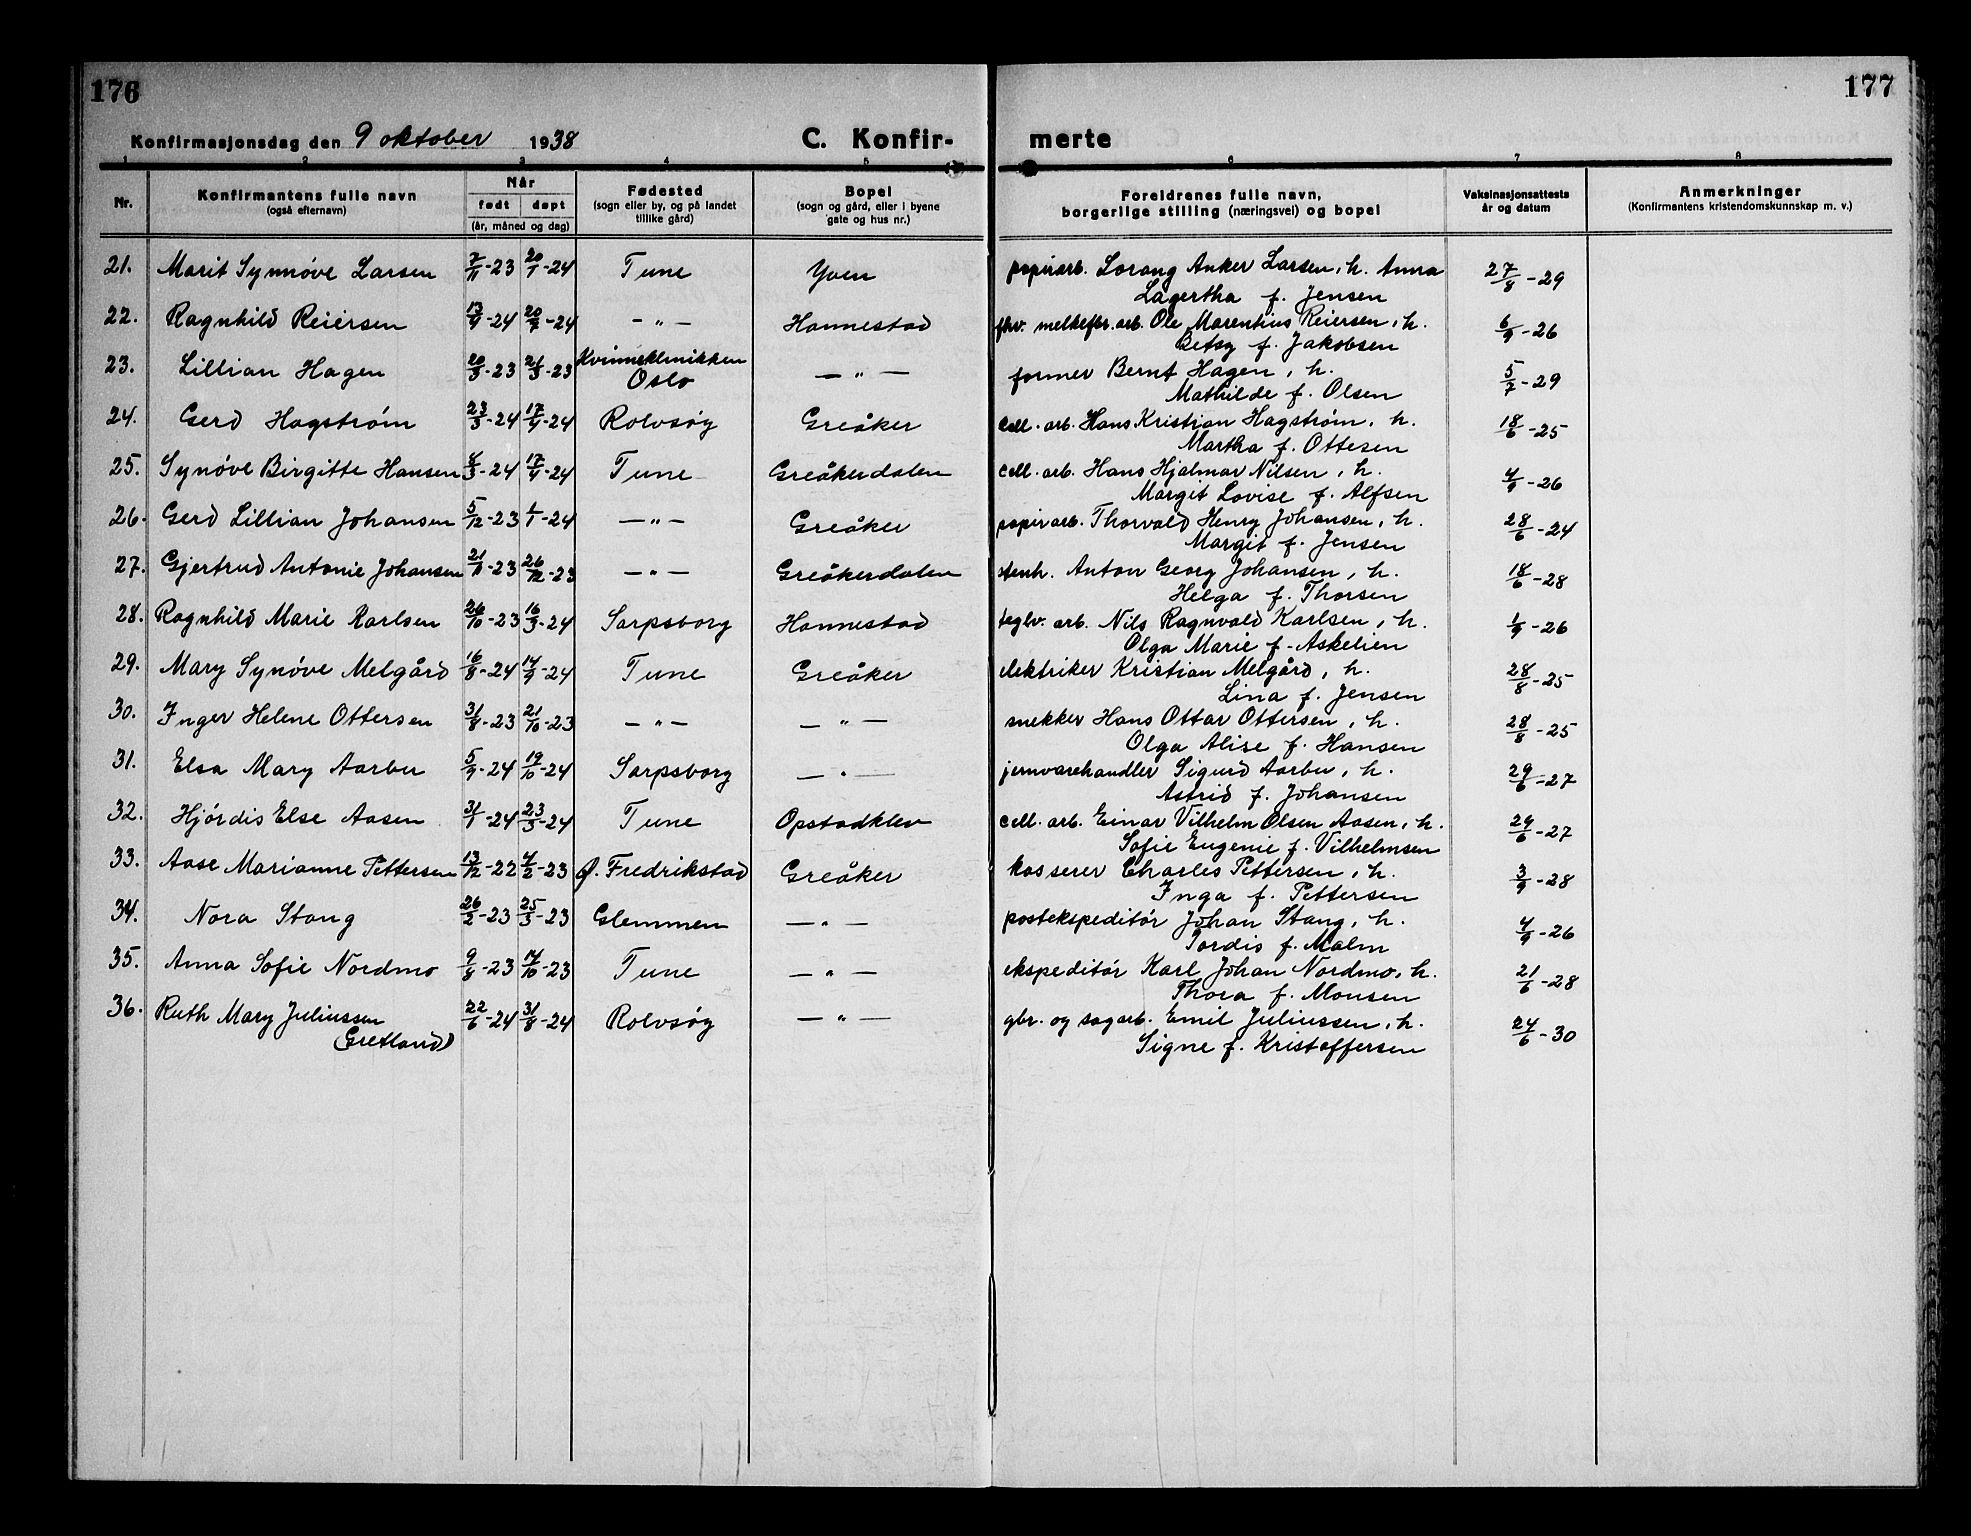 176
177
Konfirmasjonsdag den 9 oktober 1938 C. Konfir- merte
1 2 3 4 5 6 7 8
Nr. Konfirmantens fulle navn (også efternavn) Når født døpt (år, måned og dag) Fødested (sogn eller by, og på landet tillike gård) Bopel (sogn og gård, eller i byene gate og hus nr.) Foreldrenes fulle navn, borgerlige stilling (næringsvei) og bopel Vaksinasjonsattests år og datum Anmerkninger (Konfirmantens kristendomskunnskap m. v.)
21. Marit Synnøve Larsen 7/11-23 20/1-24 Tune Yven papirarb. Lorang Anker Larsen, h. Anna 27/8-29
Lagertha f. Jensen
22. Ragnhild Reiersen 13/4-24 20/7-24 -"- Hannestad fhv. melkefor.arb. Ole Marentius Reiersen, h. 6/9-26
Betsy f. Jakobsen
23. Lillian Hagen 20/3-23 21/3-23 Kvinneklinikken Oslo -"- former Bernt Hagen, h. 5/7-29
Mathilde f. Olsen
24. Gerd Hagstrøm 23/3-24 17/4-24 Rolvsøy Greåker cell. arb. Hans Kristian Hagstrøm, h. 18/6-25
Martha f. Ottesen
25. Synøve Birgitte Hansen 8/3-24 17/4-24 Tune Greåkerdalen cell. arb. Hans Hjalmar Nilsen, h. 4/9-26
Margit Lovise f. Alfsen
26. Gerd Lillian Johansen 5/12-23 6/1-24 -"- Greåker papirarb. Thorvald Henry Johansen, h. 28/6-24
Margit f. Jensen
27. Gjertrud Antonie Johansen 21/11-23 26/12-23 -"- Greåkerdalen stenh. Anton Georg Johansen, h. 18/6-28
Helga f. Thorsen
28. Ragnhild Marie Karlsen 26/10-23 16/3-24 Sarpsborg Hannestad teglv. arb. Nils Ragnvald Karlsen, h. 1/9-26
Olga Marie f. Askelien
29. Mary Synøve Melgård 16/8-24 14/9-24 Tune Greåker elektriker Kristian Melgård, h. 28/8-25
Lina f. Jensen
30. Inger Helene Ottersen 31/8-23 21/10-23 -"- -"- snekker Hans Ottar Ottersen, h. 28/8-25
Olga Alise f. Hansen
31. Elsa Mary Aarbu 5/9-24 19/10-24 Sarpsborg -"- jernvarehandler Sigurd Aarbu, h. 29/6-27
Astrid f. Johansen
32. Hjørdis Else Aasen 31/1-24 23/3-24 Tune Opstadklev cell. arb. Einar Vilhelm Olsen Aasen, h. 29/6-27
Sofie Eugenie f. Vilhelmsen
33. Aase Marianne Pettersen 13/12-22 4/2-23 Ø. Fredrikstad Greåker kasserer Charles Pettersen, h. 3/9-28
Inga f. Pettersen
34. Nora Stang 26/2-23 25/3-23 Glemmen -"- postekspeditør Johan Stang, h. 4/9-26
Tordis f. Malm
35. Anna Sofie Nordmo 9/8-23 14/10-23 Tune -"- ekspeditør Karl Johan Nordmo, h. 21/6-28
Thora f. Monsen
36. Ruth Mary Juliussen 22/6-24 31/8-24 Rolvsøy -"- gbr. og sagarb. Emil Juliussen, h. 24/6-30
(Gretland) Signe f. Kristoffersen